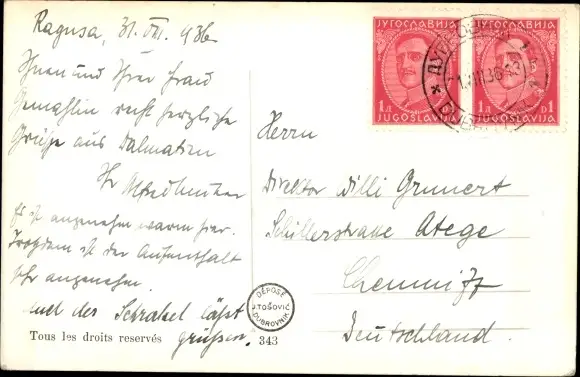 Ragusa, 31. VII. 936
Ihnen und Ihrer Frau
Gemahlin recht herzliche
Grüsse aus Dalmatien
Ihr
Es ist angenehm warm hier.
Trotzdem ist der Aufenthalt
sehr angenehm.
Auch der lässt
grüssen.
Tous les droits reservés
343
DÉPOSÉ
J. TOŠOVIĆ
DUBROVNIK
ЈУГОСЛАВИЈА
1 Д D 1
JUGOSLAVIJA
ЈУГОСЛАВИЈА
1 Д D 1
JUGOSLAVIJA
Herrn
Direktor Willi Grunert
Schillerstrasse Atege
Chemnitz
Deutschland.